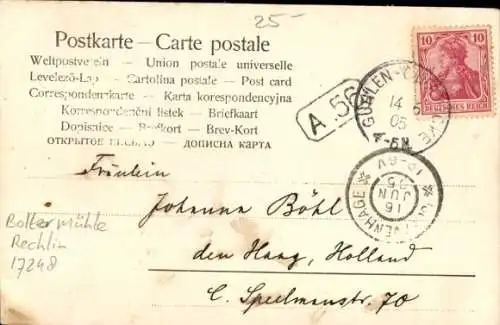 25-
Postkarte – Carte postale
Weltpostverein – Union postale universelle
Levelező-Lap – Cartolina postale – Post card
Correspondenzkarte – Karta korespondencyjna
Korrespondenční lístek – Briefkaart
Dopisnice – Brefkort – Brev-Kort
ОТКРЫТОЕ ПИСЬМО – ДОПИСНА КАРТА
10 10
DEUTSCHES REICH
14
05
4-5N
A.56
Fräulein
Johanna Böhl
den Haag, Holland
C. Speelmanstr. 70
16
JUN
05
Boltermühle
Rechlin
17248